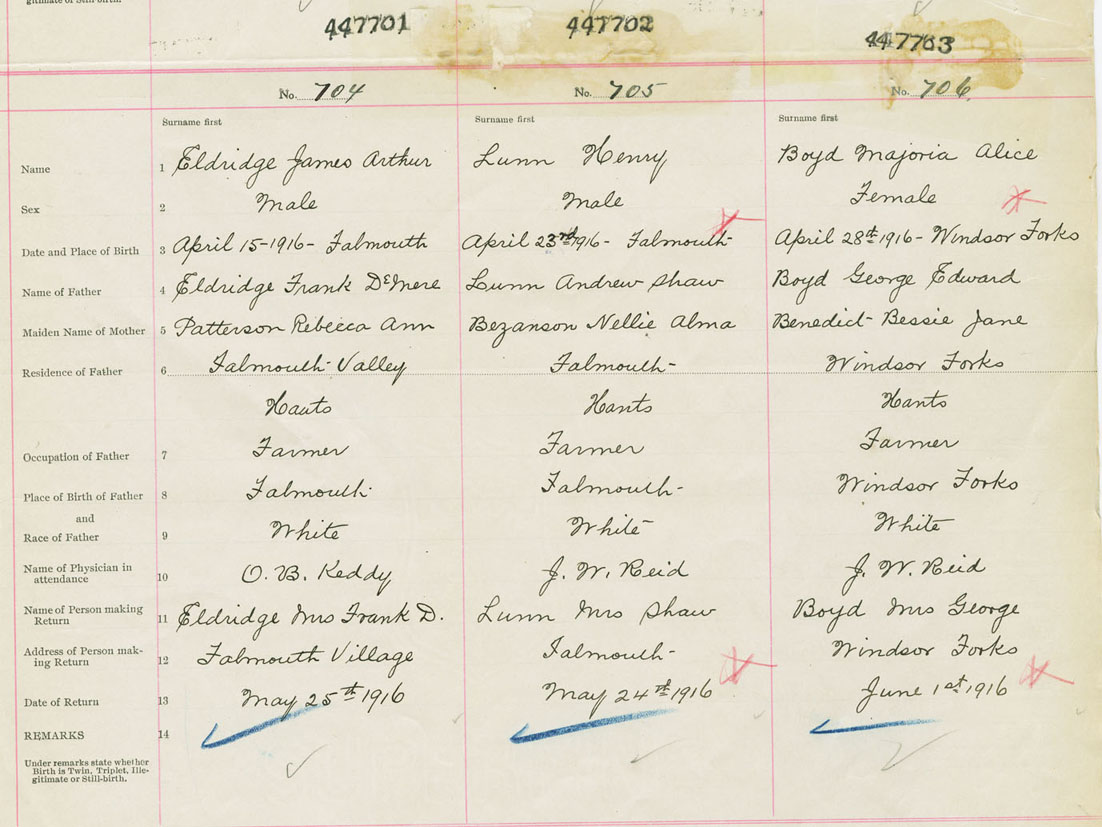 gitimate or Still-birth.
447701 447702 447703
No. 704 No. 705 No. 706
Surname first Surname first Surname first
Name 1 Eldridge James Arthur Lunn Henry Boyd Majoria Alice
Sex 2 Male Male Female
Date and Place of Birth 3 April 15-1916- Falmouth April 23rd 1916- Falmouth April 28th 1916- Windsor Forks
Name of Father 4 Eldridge Frank DeMere Lunn Andrew Shaw Boyd George Edward
Maiden Name of Mother 5 Patterson Rebecca Ann Bezanson Nellie Alma Benedict Bessie Jane
Residence of Father 6 Falmouth Valley Falmouth Windsor Forks
Hants Hants Hants
Occupation of Father 7 Farmer Farmer Farmer
Place of Birth of Father 8 Falmouth Falmouth Windsor Forks
and
Race of Father 9 White White White
Name of Physician in
attendance 10 O. B. Keddy J. W. Reid J. W. Reid
Name of Person making
Return 11 Eldridge Mrs Frank D. Lunn Mrs Shaw Boyd Mrs George
Address of Person mak-
ing Return 12 Falmouth Village Falmouth Windsor Forks
Date of Return 13 May 25th 1916 May 24th 1916 June 1st 1916
REMARKS 14
Under remarks state whether
Birth is Twin, Triplet, Ille-
gitimate or Still-birth.